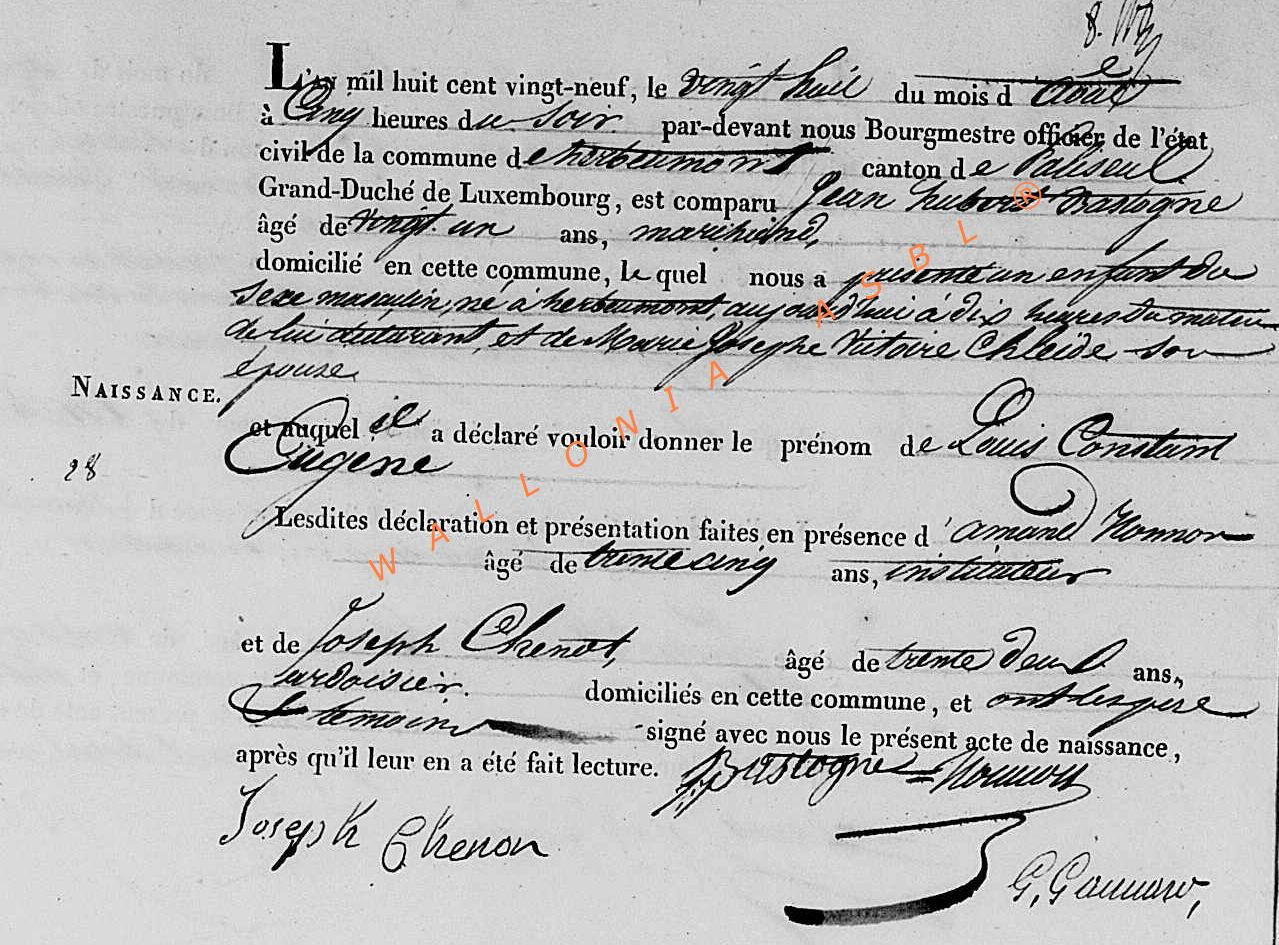 8.
L'an mil huit cent vingt-neuf, le vingt huit du mois d'août
à Cinq heures du soir par-devant nous Bourgmestre officier de l'état
civil de la commune de herbeumont canton de Paliseul
Grand-Duché de Luxembourg, est comparu Jean hubert Bastogne
âgé de vingt un ans, marchand,
domicilié en cette commune, le quel nous a présenté un enfant du
sexe masculin, né à herbeumont, aujourd'hui à dix heures du matin
de lui déclarant, et de Marie Josephe Victoire Chleide son
épouse.
NAISSANCE.
et auquel il a déclaré vouloir donner le prénom de Louis Constant
Eugène
28
Lesdites déclaration et présentation faites en présence d'amand Nonnon
âgé de trente cinq ans, instituteur
et de Joseph Chenot, âgé de trente deux ans,
ardoisier. domiciliés en cette commune, et ont les père
et temoins signé avec nous le présent acte de naissance,
après qu'il leur en a été fait lecture. Bastogne Nonnon
Joseph Chenon
G,
WALLONIA ASBL ®